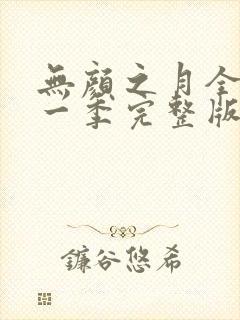 無顏之月全
一季完整版
鐮谷悠希